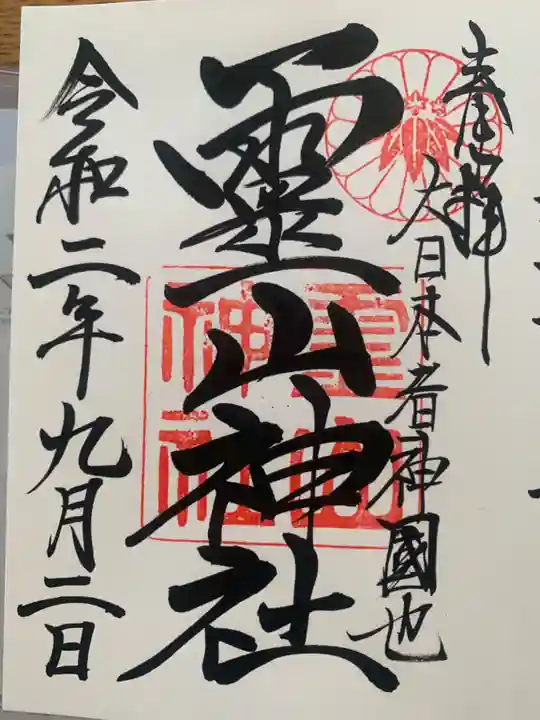 奉拜
大日本者神國也
靈山神社
霊山神社
令和二年九月二日